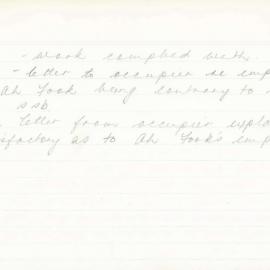 - work complied with.
- letter to occupier re emp
Ah Fook being contrary to
ssb.
letter from occupier expla
isfactory as to Ah Fook's emp